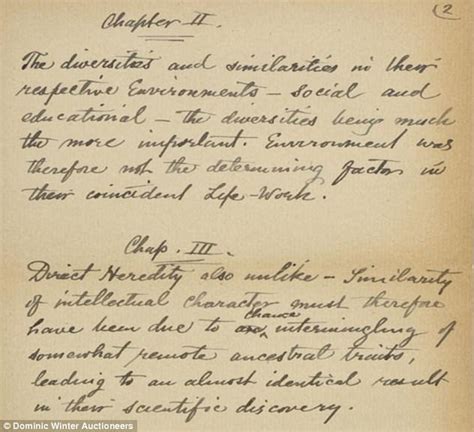 (2
Chapter II.
The diversities and similarities in their
respective Environments – social and
educational – the diversities being much
the more important. Environment was
therefore not the determining factor in
their coincident Life-Work.
Chap. III.
Direct Heredity also unlike – Similarity
of intellectual character must therefore
have been due to chance intermingling of
somewhat remote ancestral traits,
leading to an almost identical result
in their scientific discovery.
© Dominic Winter Auctioneers